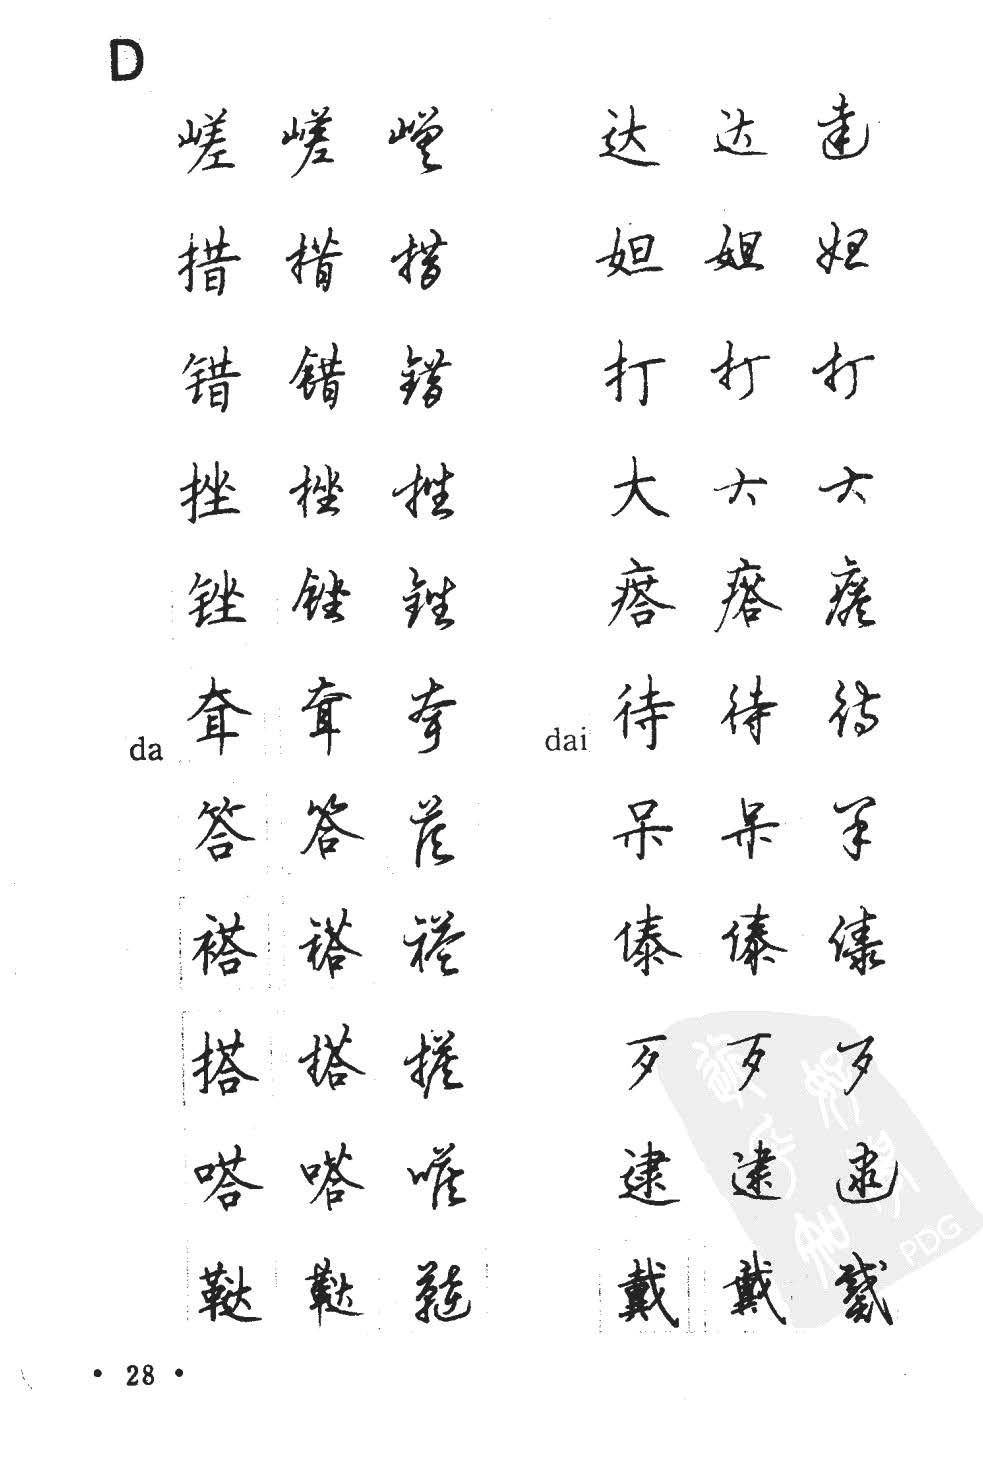 D
嵯 嵯 嵯
措 措 措
错 错 错
挫 挫 挫
锉 锉 锉
da 耷 耷 耷
答 答 答
褡 褡 褡
搭 搭 搭
嗒 嗒 嗒
鞑 鞑 鞑
达 达 达
妲 妲 妲
打 打 打
大 大 大
瘩 瘩 瘩
dai 待 待 待
呆 呆 呆
傣 傣 傣
歹 歹 歹
逮 逮 逮
戴 戴 戴
PDG
• 28 •